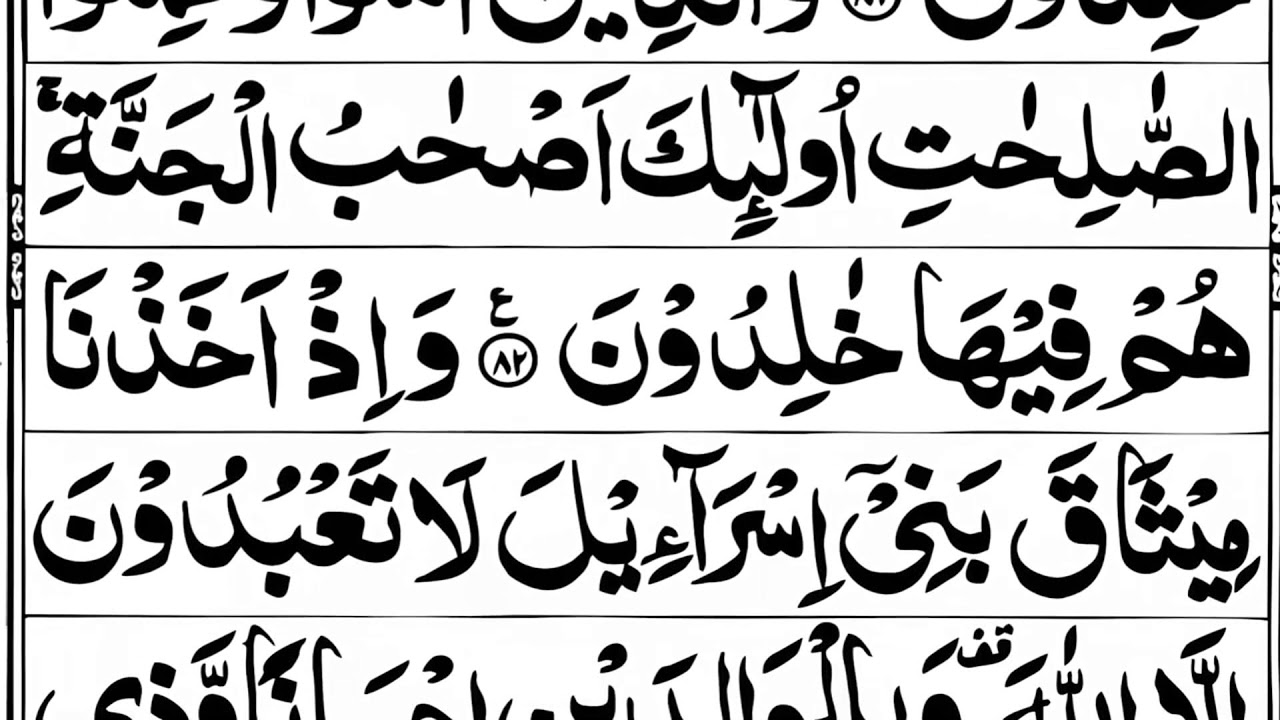 خٰلِدُوْنَ ۸۱ وَالَّذِيْنَ اٰمَنُوْا وَعَمِلُوا
الصّٰلِحٰتِ اُولٰٓئِكَ اَصْحٰبُ الْجَنَّةِ ۚ
هُمْ فِيْهَا خٰلِدُوْنَ ۸۲ ع وَاِذْ اَخَذْنَا
مِيْثَاقَ بَنِيْٓ اِسْرَآءِيْلَ لَا تَعْبُدُوْنَ
اِلَّا اللّٰهَ قف وَبِالْوَالِدَيْنِ اِحْسَانًا وَّذِي